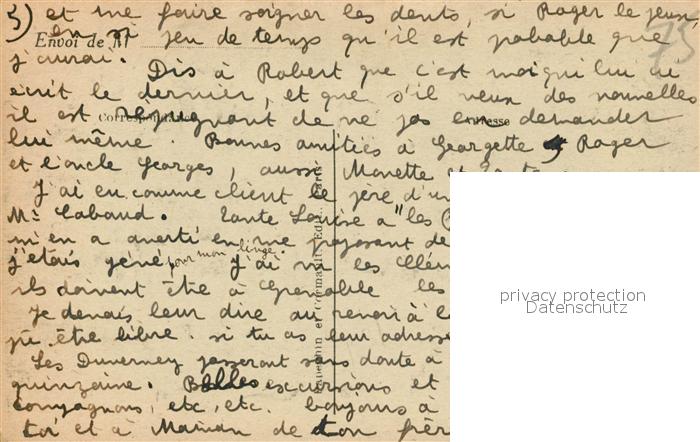 5) et me faire soigner les dents, si Roger le peux,
en si peu de temps qu'il est probable que
Envoi de M
j'aurai.
Dis à Robert que c'est moi qui lui ai
écrit le dernier, et que s'il veux des nouvelles
il est répugnant de ne pas en demander
Correspondance
Adresse
lui même. Bonnes amitiés à Georgette et Roger
et l'oncle Georges, aussi Monette et
J'ai eu comme client le père d'un
Mr Cabaud. Tante Louise a "les
m'en a averti en me proposant de
j'étais gêné pour mon linge. J'ai vu les
ils doivent être à Grenoble les
Je devais leur dire au revoir à
pu être libre. si tu as leur adresse
Les Duverney passeront sans doute à
quinzaine. Belles excursions et
compagnons, etc, etc. bonjours à
toi et à Maman de ton frèr
privacy protection
Datenschutz